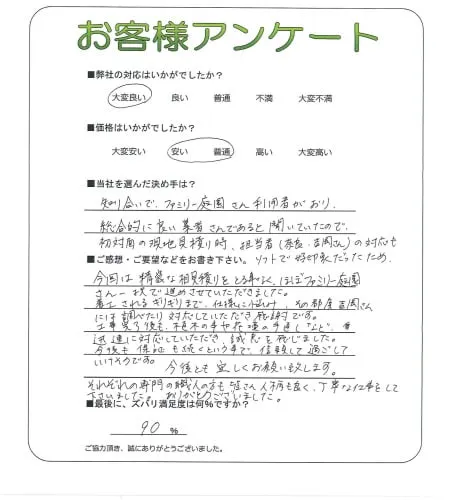 お客様アンケート
■弊社の対応はいかがでしたか？
大変良い 良い 普通 不満 大変不満
■価格はいかがでしたか？
大変安い 安い 普通 高い 大変高い
■当社を選んだ決め手は？
知り合いで、ファミリー庭園さん利用者がおり、
総合的に良い業者さんであると聞いていたので。
初対面の現地見積り時、担当者（奈良・吉岡さん）の対応も
■ご感想・ご要望などをお書き下さい。 ソフトで好印象だったため、
今回は 相見積りをとる事なく、ほぼファミリー庭園
さん一択で進めさせていただきました。
着工されるぎりぎりまで、仕様に その都度吉岡さん
には調べたり対応していただき感謝です。
工事完了後も、植木の など、
迅速に対応していただき、誠意を感じました。
今後も保証も続くという事で、信頼して過ごして
いけそうです。 今後とも宜しくお願い致します。
それぞれの専門の職人の方も皆さん人柄も良く、丁寧な仕事をして
下さいました。ありがとうございました。
■最後に、ズバリ満足度は何％ですか？
90 %
ご協力頂き、誠にありがとうございました。